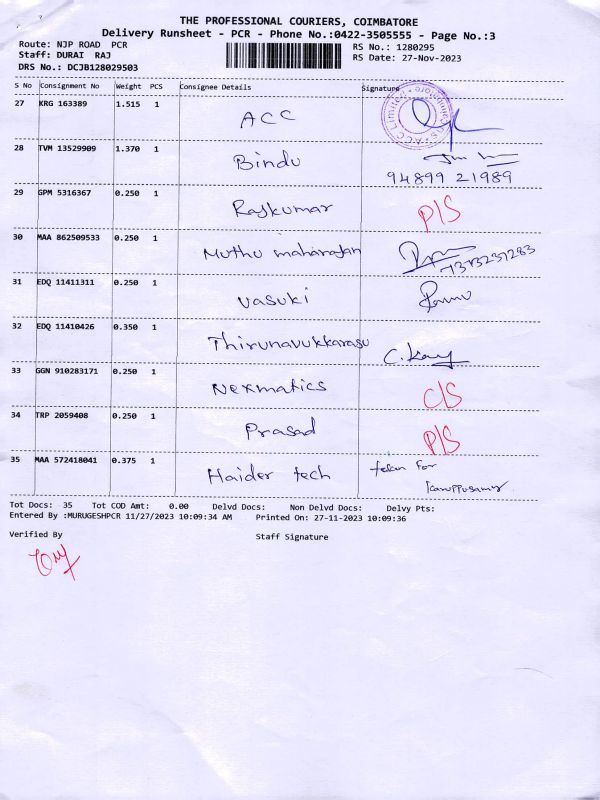 THE PROFESSIONAL COURIERS, COIMBATORE
Delivery Runsheet - PCR - Phone No.:0422-3505555 - Page No.:3
Route: NJP ROAD PCR
Staff: DURAI RAJ
DRS No.: DCJB128029503
RS No.: 1280295
RS Date: 27-Nov-2023
S No Consignment No Weight PCS Consignee Details Signature
27 KRG 163389 1.515 1 ACC
28 TVM 13529909 1.370 1 Bindu
94899 21989
29 GPM 5316367 0.250 1 Rajkumar P/S
30 MAA 862509533 0.250 1 Muthu maharajan
7373231283
31 EDQ 11411311 0.250 1 Vasuki
32 EDQ 11410426 0.350 1 Thirunavukkarasu
33 GGN 910283171 0.250 1 Nexmatics C/S
34 TRP 2059408 0.250 1 Prasad P/S
35 MAA 572418041 0.375 1 Haider tech
Tot Docs: 35 Tot COD Amt: 0.00 Delvd Docs: Non Delvd Docs: Delvy Pts:
Entered By :MURUGESHPCR 11/27/2023 10:09:34 AM Printed On: 27-11-2023 10:09:36
Verified By Staff Signature